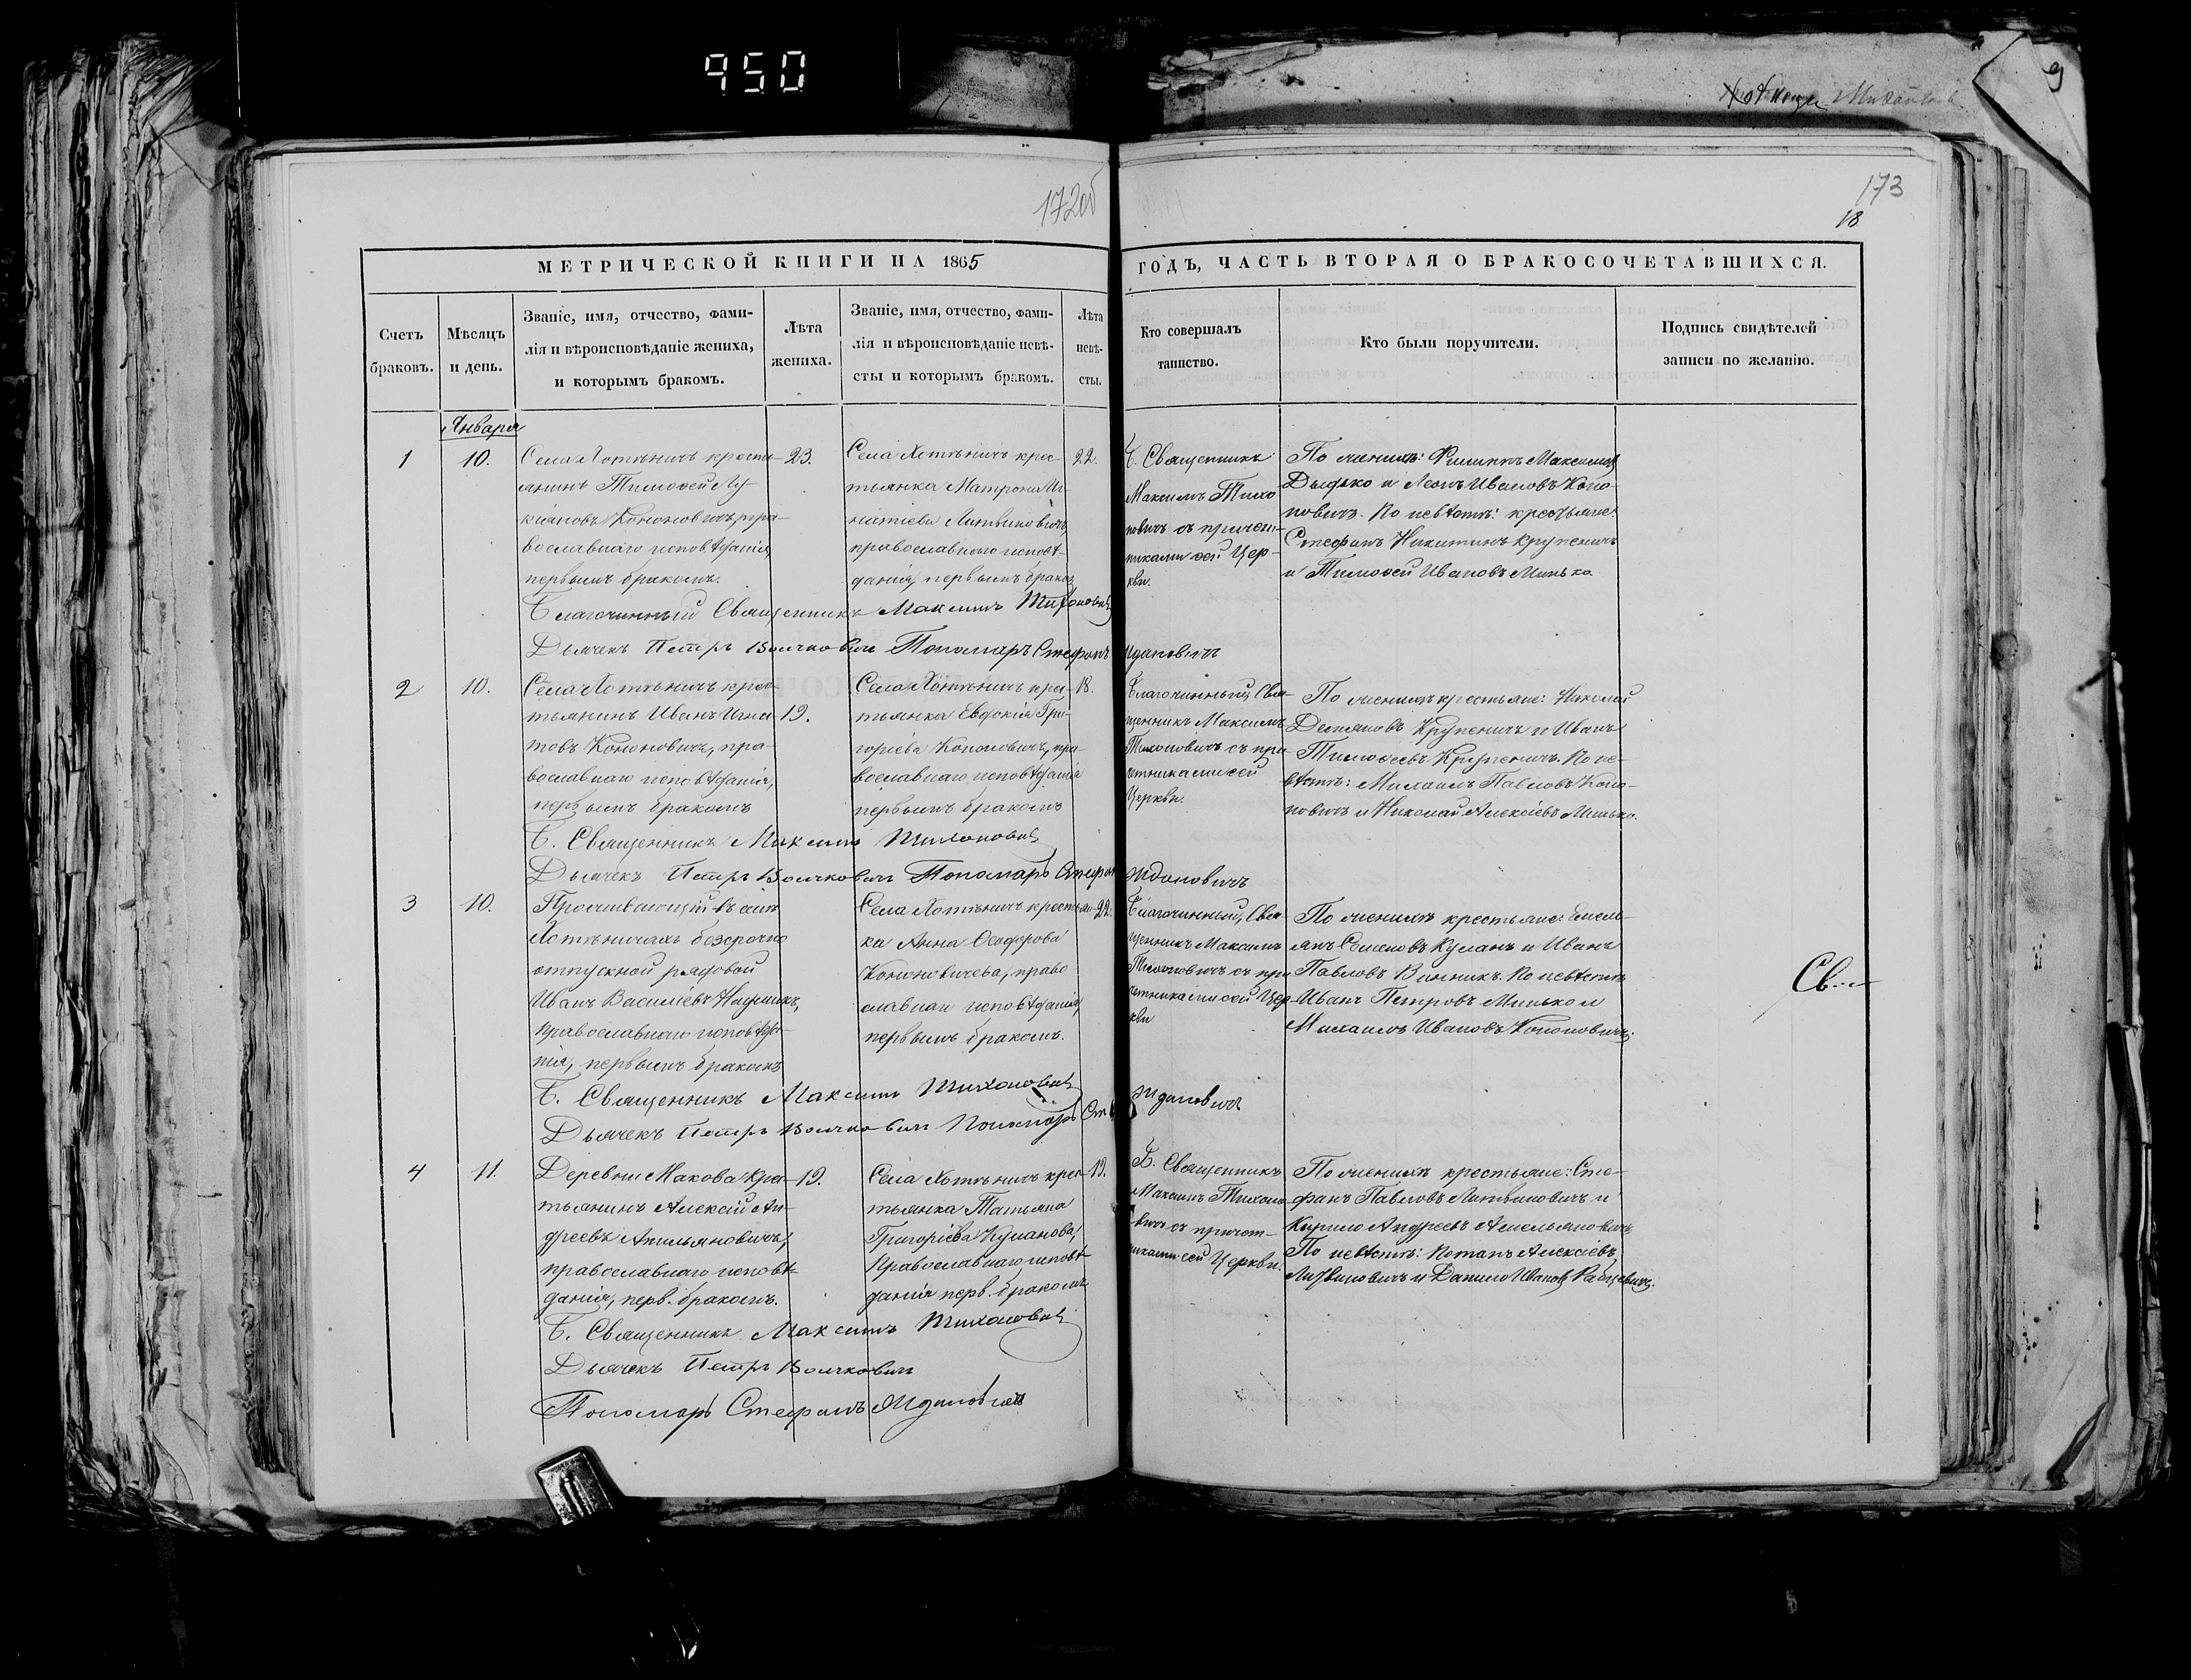 950
Хотеничи
9
172об
173
18
МЕТРИЧЕСКОЙ КНИГИ НА 1865
ГОДЪ, ЧАСТЬ ВТОРАЯ О БРАКОСОЧЕТАВШИХСЯ.
Счетъ
браковъ.
Мѣсяцъ
и день.
Званіе, имя, отчество, фами-
лія и вѣроисповѣданіе жениха,
и которымъ бракомъ.
Лѣта
жениха.
Званіе, имя, отчество, фами-
лія и вѣроисповѣданіе невѣ-
сты и которымъ бракомъ.
Лѣта
невѣ-
сты.
Кто совершалъ
таинство.
Кто были поручители.
Подпись свидѣтелей
записи по желанію.
Января
1
10.
Села Хотѣничъ кресть-
янинъ Тимоѳей Лу-
кіяновъ Кононовичъ, пра-
вославнаго исповѣданія,
первымъ бракомъ.
23.
Села Хотѣничъ крес-
тьянка Матрона Иг-
натіева Литвиновичъ,
православнаго исповѣ-
данія, первымъ браком
22.
Б. Священникъ
Максимъ Тихо
новичъ съ причет-
никами сей Цер-
кви.
По женихѣ: Филиппъ Максимов
Дышко и Леонъ Ивановъ Коно-
новичъ. По невѣстѣ: крестьяне:
Стефанъ Никитинъ Крупеничъ
и Тимоѳей Ивановъ Минько.
Благочинный Священникъ Максимъ Тихоновичъ
Дьячекъ Петръ Волчковичъ Пономаръ Стефанъ Ждановичъ
2
10.
Села Хотѣничъ крес-
тьянинъ Иванъ Игна-
товъ Кононовичъ, пра-
вославнаго исповѣданія,
первымъ бракомъ
19.
Села Хотѣничъ крес-
тьянка Евдокія Гри-
горіева Кононовичъ, пра-
вославнаго исповѣданія
первымъ бракомъ
18.
Благочинный, Свя-
щенникъ Максимъ
Тихоновичъ съ при-
четниками сей
Церкви.
По женихѣ крестьяне: Николай
Демьяновъ Крупеничъ и Иванъ
Тимоѳеевъ Крупеничъ. По не-
вѣстѣ: Михаилъ Павловъ Коно-
новичъ и Николай Алексѣевъ Минько.
Б. Священникъ Максимъ Тихоновичъ
Дьячекъ Петръ Волчковичъ Пономаръ Стефан Ждановичъ
3
10.
Проживающій въ селѣ
Хотѣничахъ безсрочно
отпускной рядовой
Иванъ Василіевъ
православнаго исповѣда-
нія, первымъ бракомъ
Села Хотѣничъ крестьян-
ка Анна Ѳеодорова
Кононовичева, право
славнаго исповѣданія,
первымъ бракомъ.
22.
Благочинный, Свя-
щенникъ Максимъ
Тихоновичъ съ при
четниками сей Цер-
кви
По женихѣ крестьяне: Емель-
янъ Семеновъ Куланъ и Иванъ
Павловъ Винникъ. По невѣстѣ
Иванъ Петровъ Минько и
Михаилъ Ивановъ Кононовичъ.
Св
Б. Священникъ Максимъ Тихоновичъ
Дьячекъ Петръ Волчковичъ Пономаръ Ст Ждановичъ
4
11.
Деревни Макова крес-
тьянинъ Алексѣй Ан-
дреевъ Амильяновичъ,
православнаго исповѣ-
данія, перв. бракомъ.
19.
Села Хотѣничъ крес-
тьянка Татьяна
Григоріева Куланова,
Православнаго исповѣ-
данія перв. бракомъ
19.
Б. Священникъ
Максимъ Тихоно-
вичъ съ причет-
никами сей Церкви.
По женихѣ крестьяне: Сте-
фанъ Павловъ Литвиновичъ и
Кирило Андреевъ Амельяновичъ
По невѣстѣ: Потапъ Алексѣевъ
Литвиновичъ и Данило Ивановъ Рабцевичъ.
Б. Священникъ Максимъ Тихоновичъ
Дьячекъ Петръ Волчковичъ
Пономаръ Стефанъ Ждановичъ